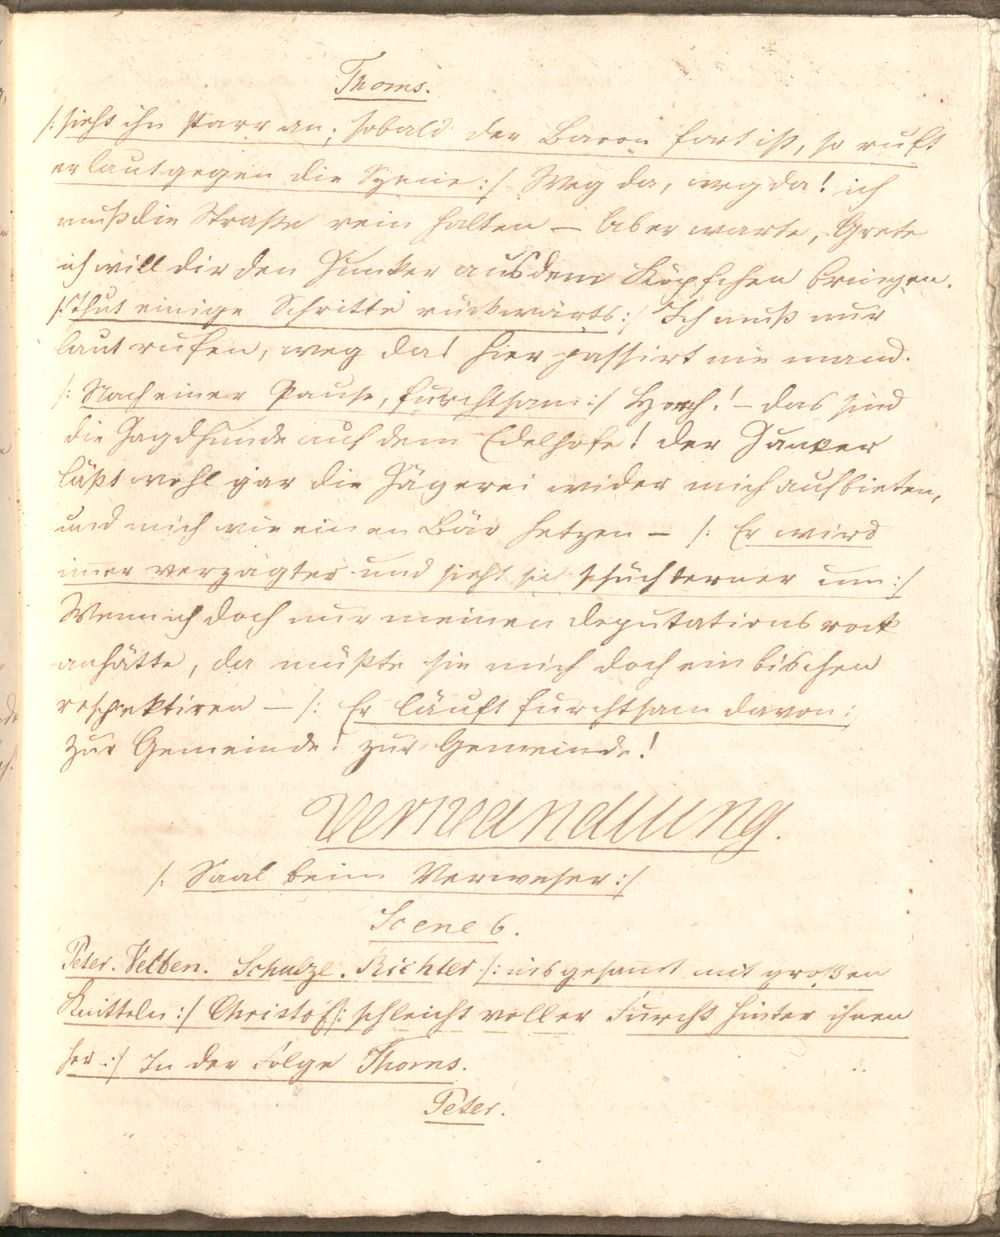 Thoms.
/: sieht ihn starr an; sobald der Baron fort ist, so ruft
er laut gegen die Szene :/ Weg da, weg da! ich
muß die Straße rein halten — Aber warte, Grete
ich will dir den Junker aus dem Köpfchen bringen.
/: Thut einige Schritte rückwärts :/ Ich muß nur
laut rufen, weg da! hier passirt niemand.
/: Nach einer Pause, furchtsam :/ Horch! — das sind
die Jagdhunde auf dem Edelhofe! der Junker
läßt wohl gar die Jägerei wider mich aufbieten,
und mich wie einen Bär hetzen — /: Er wird
imer verzagter und sieht sich schüchterner um :/
Wenn ich doch nur meinen Deputationsrock
anhätte, da müßte sie mich doch ein bischen
respektiren — /: Er läuft furchtsam davon :/
zur Gemeinde! zur Gemeinde!
Verwandlung.
/: Saal beim Verweser :/
Scene 6.
Peter. Velten. Schulze. Richter /: insgesamt mit großen
Knitteln :/ Christof /: schleicht voller Furcht hinter ihnen
her :/ In der Folge Thoms.
Peter.